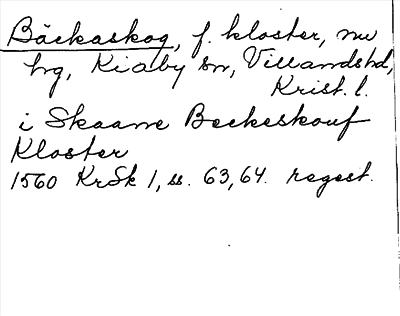 Bäckaskog, f. kloster, nu
hg, Kiaby sn, Villandshd,
Krist. l.
i Skaane Beckeskouf
Kloster
1560 KrSk 1, ss. 63, 64. regest.